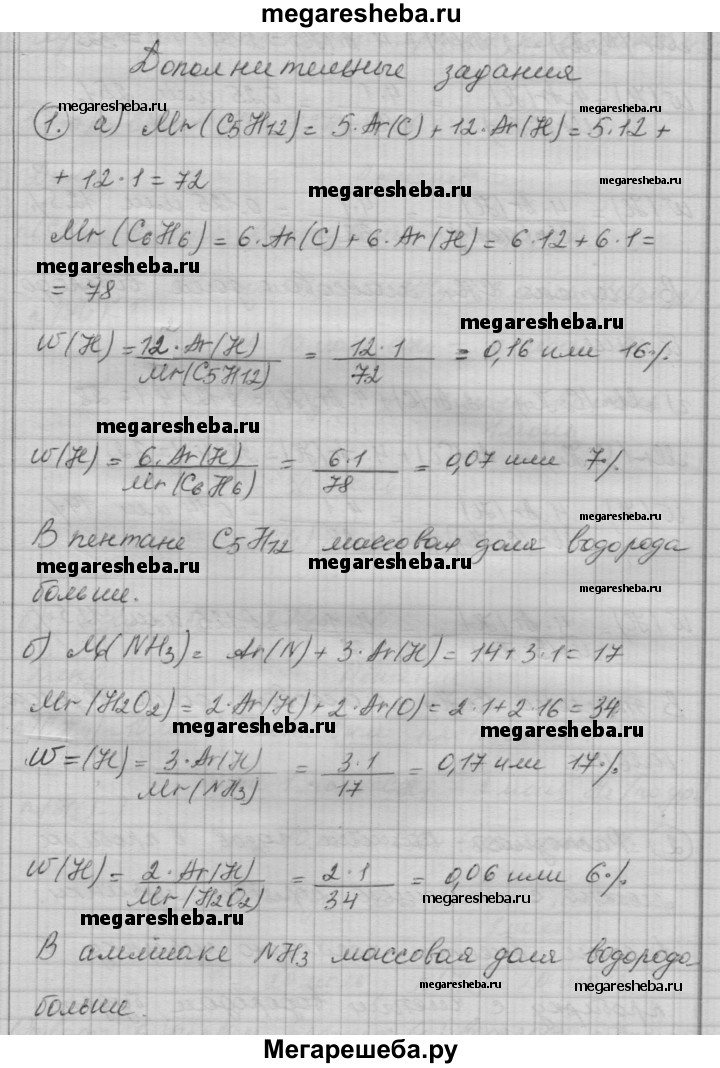 megaresheba.ru
Дополнительные задания
megaresheba.ru megaresheba.ru
1. а) Mr(C5H12) = 5·Ar(C) + 12·Ar(H) = 5·12 +
+ 12·1 = 72
megaresheba.ru megaresheba.ru
Mr(C6H6) = 6·Ar(C) + 6·Ar(H) = 6·12 + 6·1 =
megaresheba.ru
= 78
megaresheba.ru
w(H) = 12·Ar(H) / Mr(C5H12) = 12·1 / 72 = 0,16 или 16%
megaresheba.ru
w(H) = 6·Ar(H) / Mr(C6H6) = 6·1 / 78 = 0,07 или 7%
megaresheba.ru
В пентане C5H12 массовая доля водорода
megaresheba.ru megaresheba.ru
больше.
megaresheba.ru
б) Mr(NH3) = Ar(N) + 3·Ar(H) = 14 + 3·1 = 17
Mr(H2O2) = 2·Ar(H) + 2·Ar(O) = 2·1 + 2·16 = 34
megaresheba.ru megaresheba.ru
W = (H) = 3·Ar(H) / Mr(NH3) = 3·1 / 17 = 0,17 или 17%
w(H) = 2·Ar(H) / Mr(H2O2) = 2·1 / 34 = 0,06 или 6%
megaresheba.ru megaresheba.ru
В аммиаке NH3 массовая доля водорода
megaresheba.ru megaresheba.ru
больше.
Мегарешеба.ру